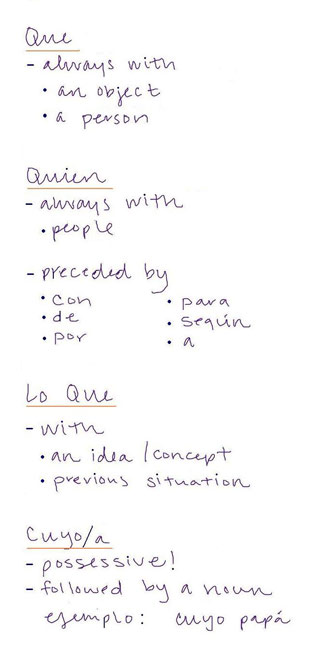 Que
- always with
• an object
• a person
Quien
- always with
• people
- preceded by
• con
• de
• por
• para
• según
• a
Lo Que
- with
• an idea/concept
• previous situation
Cuyo/a
- possessive!
- followed by a noun
ejemplo: cuyo papá